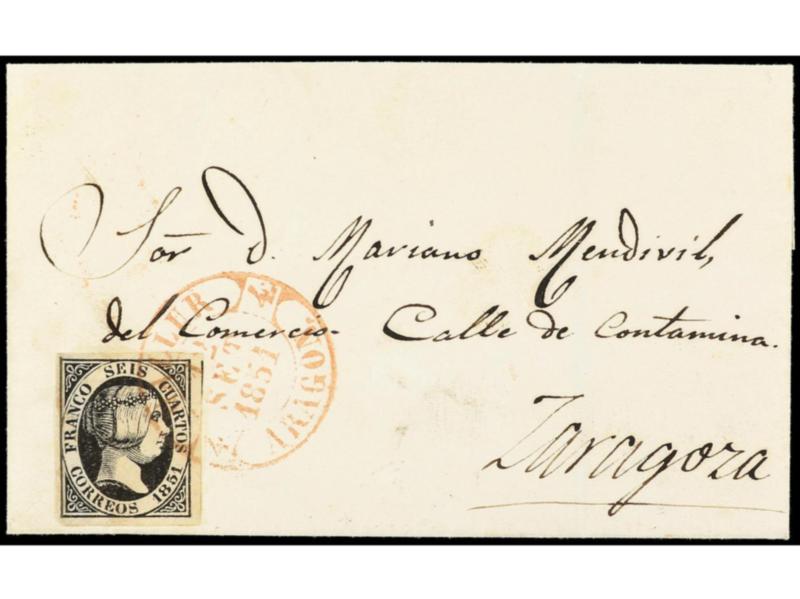 Sor. D. Mariano Mendivil,
del Comercio. Calle de Contamina.
Zaragoza
SET
1851
ARAGON.
FRANCO SEIS CUARTOS
CORREOS 1851